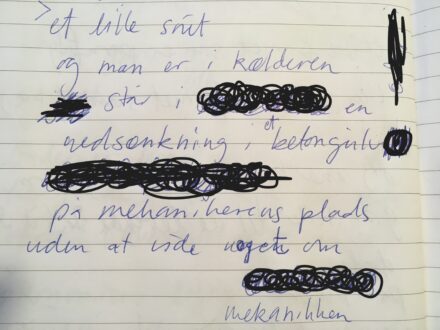 et lille snit
og man er i kælderen
står i en
nedsænkning i et betongulv
på mekanikerens plads
uden at vide noget om
mekanikken